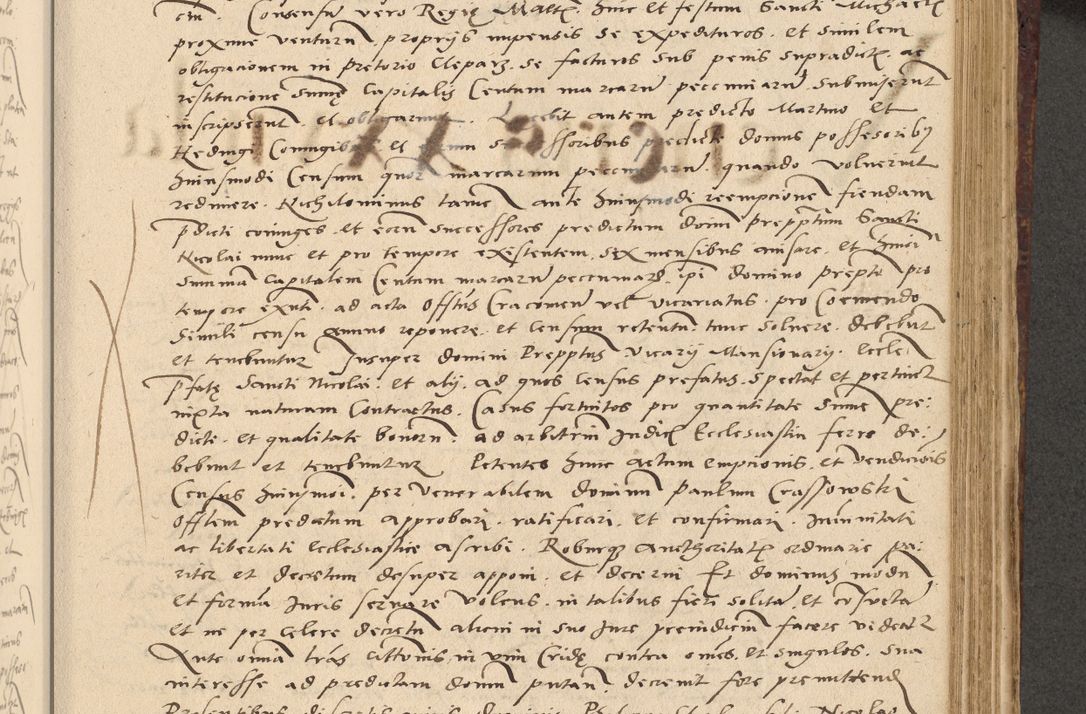 Consensu vero Regię Mattis hinc Et festum Sancti Michaelis
proxime venturum, proprijs impensis se expedituros, et similem
obligacionem in pretorio Cleparz. se facturos sub penis supradictis ac
restitucione summę Capitalis Centum marcarum pecuniarum submiserunt
inscripserunt et obligarunt. Licebit autem predicto Martino et
Hedingi Coniugibus Et eorum successoribus predicte domus possessoribus
huiusmodi Censum quatuor marcarum pecuniarum quando voluerint
redimere. Nichilominus tamen ante huiusmodi reempcionem fiendam
predicti coniuges et eorum successores predictum dominum prepositum Sancti
Nicolai nunc et pro tempore existentem, sex mensibus auisare, et huiusmodi
summam Capitalem Centum marcarum pecuniarum ipsi domino preposito pro
tempore existenti, ad acta Officij Cracouiensis vel vicariatus, pro Coemendo
simili censu reponere, et Censum retentum tunc soluere, debebunt
et tenebuntur Insuper domini Prepositus Vicarij Mansionarij Ecclesie
prefatę Sancti Nicolai, et alij, ad quos Census prefatus, spectat et pertinet
iuxta naturam Contractus, Casus fortuitos pro quantitate summe pre:
dicte, et qualitate bonorum, ad arbitrium Iudicis Ecclesiastici ferre de:
bebunt et tenebuntur Petentes hunc actum empcionis, et vendicionis
Census huiusmodi, per Venerabilem dominum Paulum Crassowski
Officialem predictum approbari, ratificari, Et confirmari, Immunitati
ac libertati Ecclesiastice ascribi. Roburque Authoritatis ordinarie pa:
riter et decretum desuper apponi, et decerni Et dominus modum
et formam Iuris seruare volens, in talibus fieri solitam, Et consuetam
Et ne per celere decretum alicui in suo Iure preiudicium facere videatur
Ante omnia literas Cittationis in vim Cridę contra omnes, et singulos, sua
interesse ad predictam domum putantes, decreuit fore premittendas
Presentibus